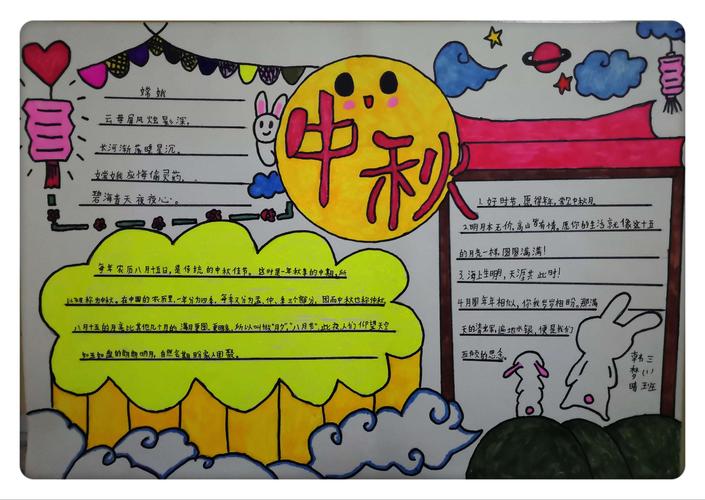 嫦娥
云母屏风烛影深,
长河渐落晓星沉。
嫦娥应悔偷灵药,
碧海青天夜夜心。
中秋
每年农历八月十五日,是传统的中秋佳节。这时是一年秋季的中期,所
以被称为中秋。在中国的农历里,一年分为四季,每季又分为孟、仲、季三个部分,因而中秋也称仲秋。
八月十五的月亮比其他几个月的满月更圆,更明亮,所以又叫做"月夕","八月节"。此夜人们仰望天空
如玉如盘的朗朗明月,自然会期盼家人团聚。
1.好时节,愿得年年,常见中秋月。
2.明月本无价,高山皆有情。愿你的生活就像这十五
的月亮一样,圆圆满满!
3.海上生明月,天涯共此时!
4.月圆年年相似,你我岁岁相盼。那满
天的清辉,遍地水银,便是我们
互致的思念。
三(1)班
韩梦晴